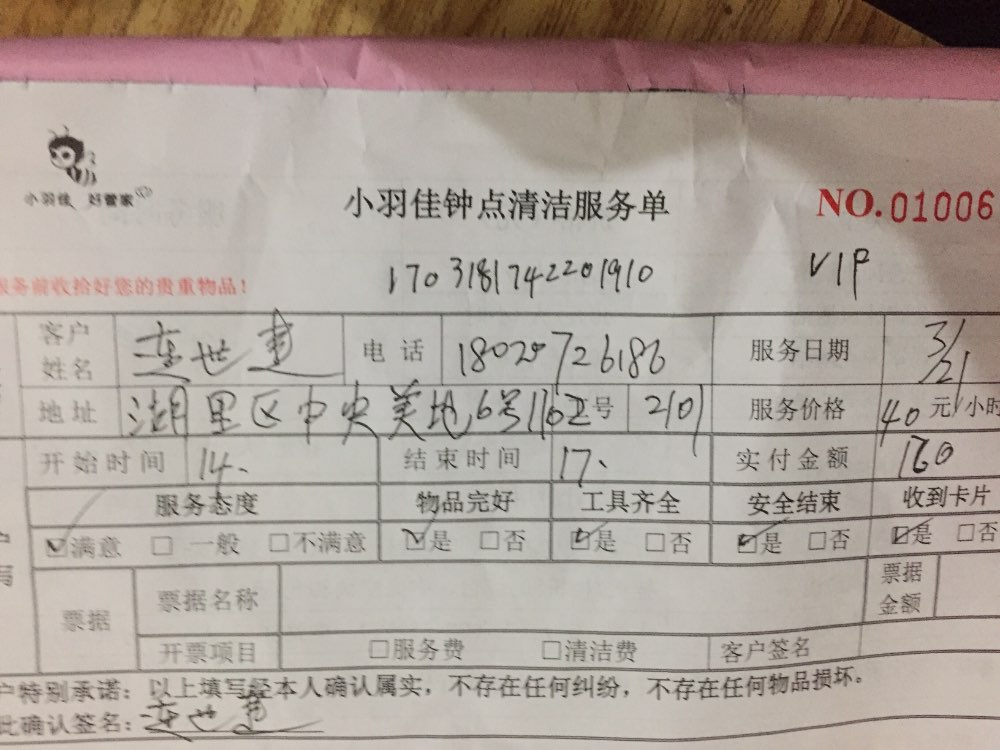 小羽佳 好管家
小羽佳钟点清洁服务单
NO.01006
1703181742201910
VIP
服务前收拾好您的贵重物品!
客户姓名 连世建 电话 18020726186 服务日期 3/21
地址 湖里区中央美地6号116之号 2101 服务价格 40元/小时
开始时间 14、 结束时间 17、 实付金额 160
服务态度 物品完好 工具齐全 安全结束 收到卡片
☑满意 □一般 □不满意 ☑是 □否 ☑是 □否 ☑是 □否 ☑是 □否
票据 票据名称 票据金额
开票项目 □服务费 □清洁费 客户签名
户特别承诺:以上填写经本人确认属实,不存在任何纠纷,不存在任何物品损坏。
此确认签名:连世建